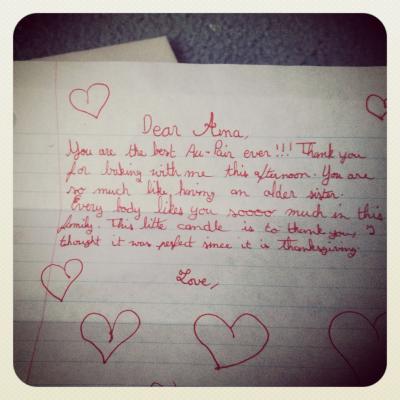 Dear Aina,
You are the best Au-Pair ever!!! Thank you
for baking with me this afternoon. You are
so much like having an older sister.
Every body likes you soooo much in this
family. This litte candle is to thank you, I
thought it was perfect since it is thanksgiving.
Love,